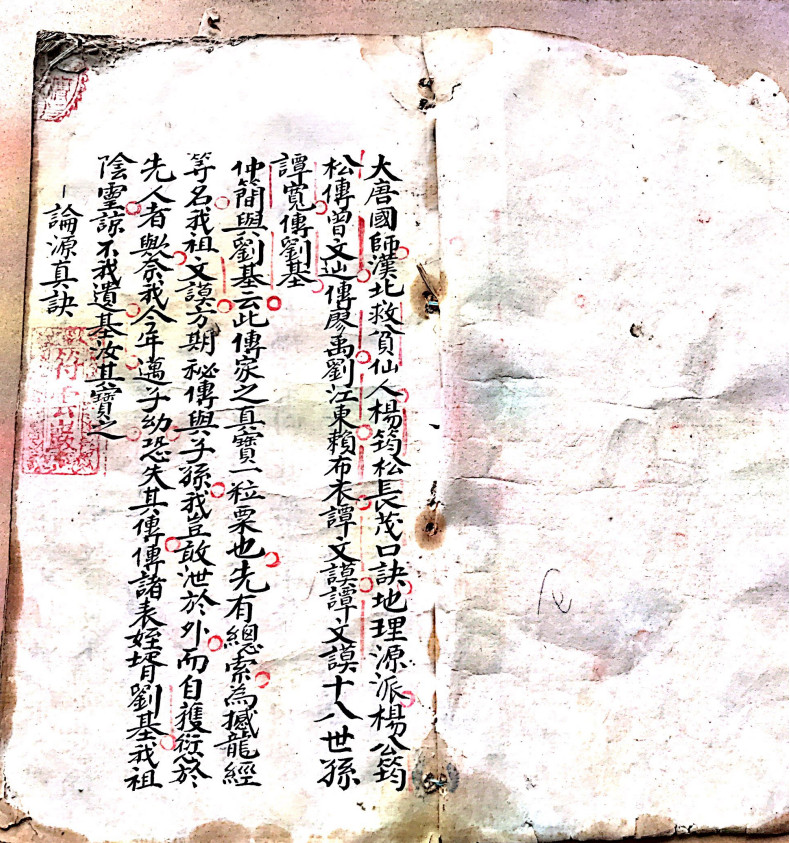 大唐國師漢北救貧仙人楊筠松長茂口訣地理源派楊公筠
松傳曾文辿傳廖禹劉江東賴布衣譚文謨譚文謨十八世孫
譚寬傳劉基
仲簡與劉基云此傳家之真寶一粒粟也先有總索為撼龍經
等名我祖文謨方期秘傳與子孫我豈敢泄於外而自獲愆於
先人者與奈我今年邁子幼恐失其傳傳諸表姪壻劉基我祖
陰靈諒不我遺基汝其寶之
一論源真訣